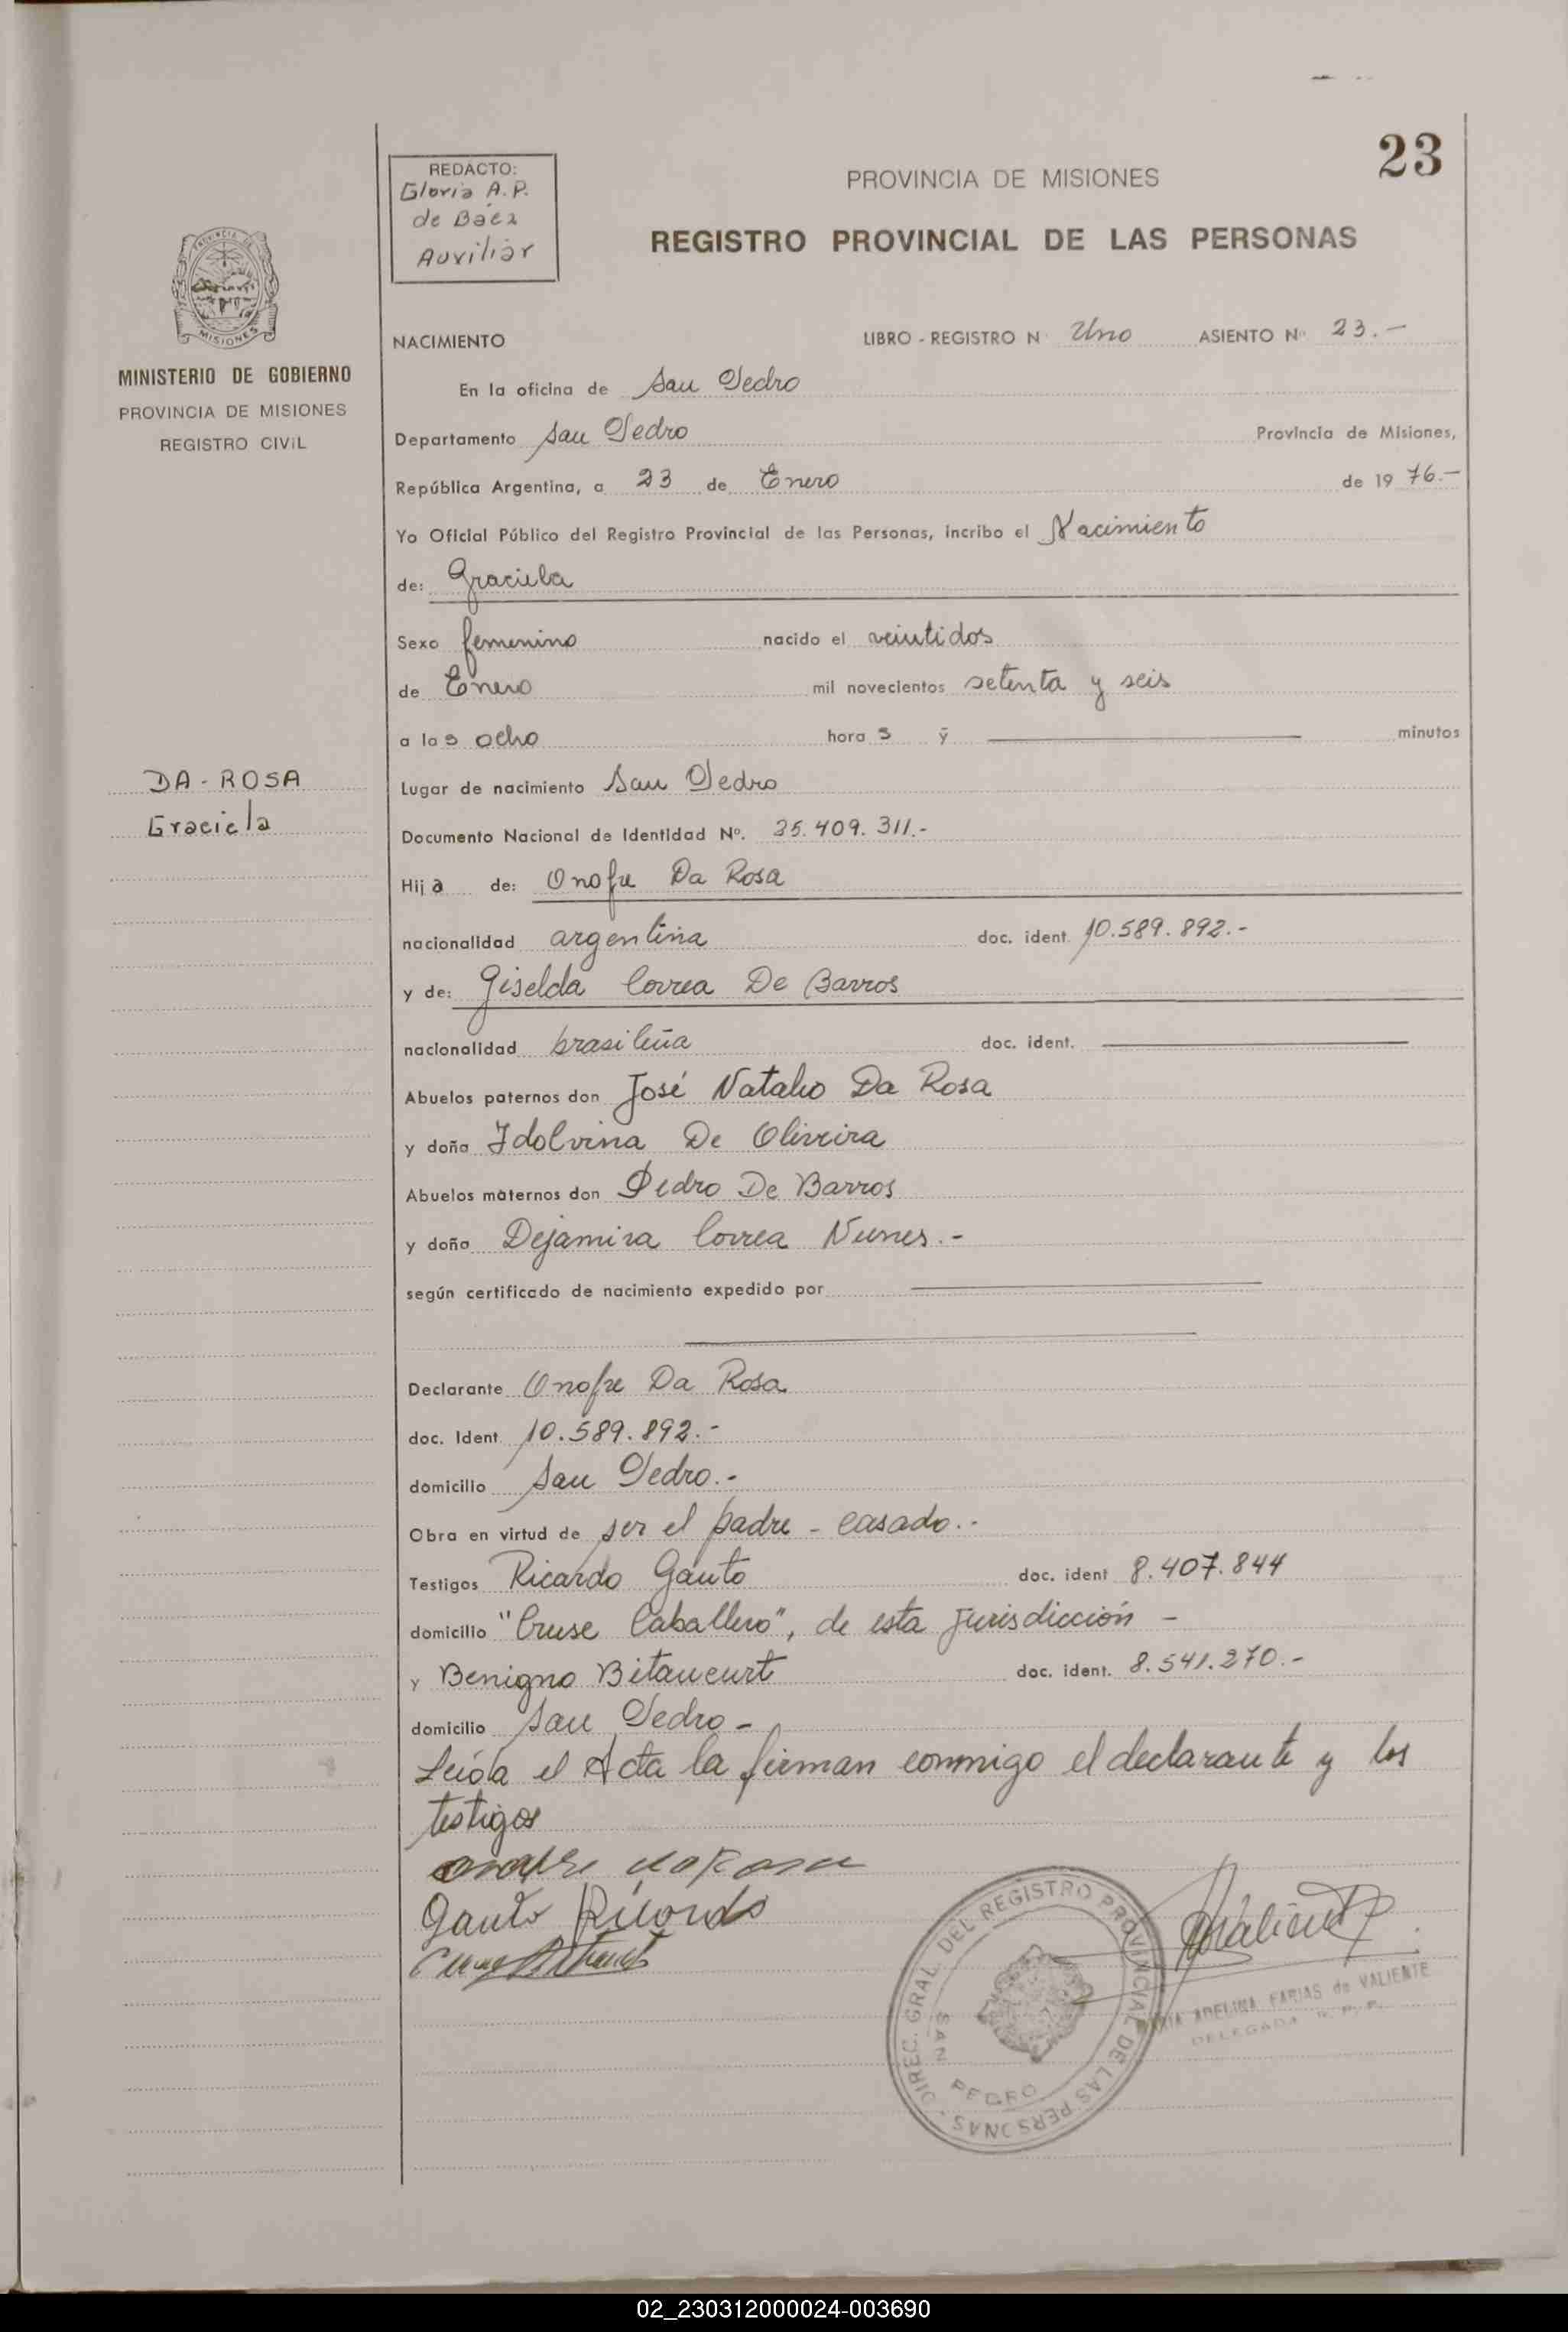 23
REDACTO:
Gloria A.P.
de Báez
Auxiliar
PROVINCIA DE MISIONES
REGISTRO PROVINCIAL DE LAS PERSONAS
MISIONES
MINISTERIO DE GOBIERNO
PROVINCIA DE MISIONES
REGISTRO CIVIL
NACIMIENTO LIBRO - REGISTRO N Uno ASIENTO Nº 23.-
En la oficina de San Pedro
Departamento San Pedro Provincia de Misiones,
República Argentina, a 23 de Enero de 19 76.-
Yo Oficial Público del Registro Provincial de las Personas, incribo el Nacimiento
de: Graciela
Sexo femenino nacido el veintidos
de Enero mil novecientos setenta y seis
a las ocho hora s y minutos
DA-ROSA
Graciela
Lugar de nacimiento San Pedro
Documento Nacional de Identidad Nº. 25.409.311.-
Hij a de: Onofre Da Rosa
nacionalidad argentina doc. ident. 10.589.892.-
y de: Giselda Correa De Barros
nacionalidad brasileña doc. ident.
Abuelos paternos don José Natalio Da Rosa
y doña Idolvina De Oliveira
Abuelos maternos don Pedro De Barros
y doña Dejamira Correa Nunes.-
según certificado de nacimiento expedido por
Declarante Onofre Da Rosa
doc. Ident. 10.589.892.-
domicilio San Pedro.-
Obra en virtud de ser el padre - casado.-
Testigos Ricardo Gauto doc. ident 8.407.844
domicilio "Cruse Caballero", de esta jurisdicción -
y Benigno Bitancurt doc. ident. 8.541.270.-
domicilio San Pedro-
Leída el Acta la firman conmigo el declarante y los
testigos
onofre da Rosa
Gauto Ricardo
DIREC. GRAL. DEL REGISTRO PROVINCIAL DE LAS PERSONAS
SAN PEDRO
MARIA ADELINA FARIAS de VALIENTE
DELEGADA R. P. P.
02_230312000024-003690